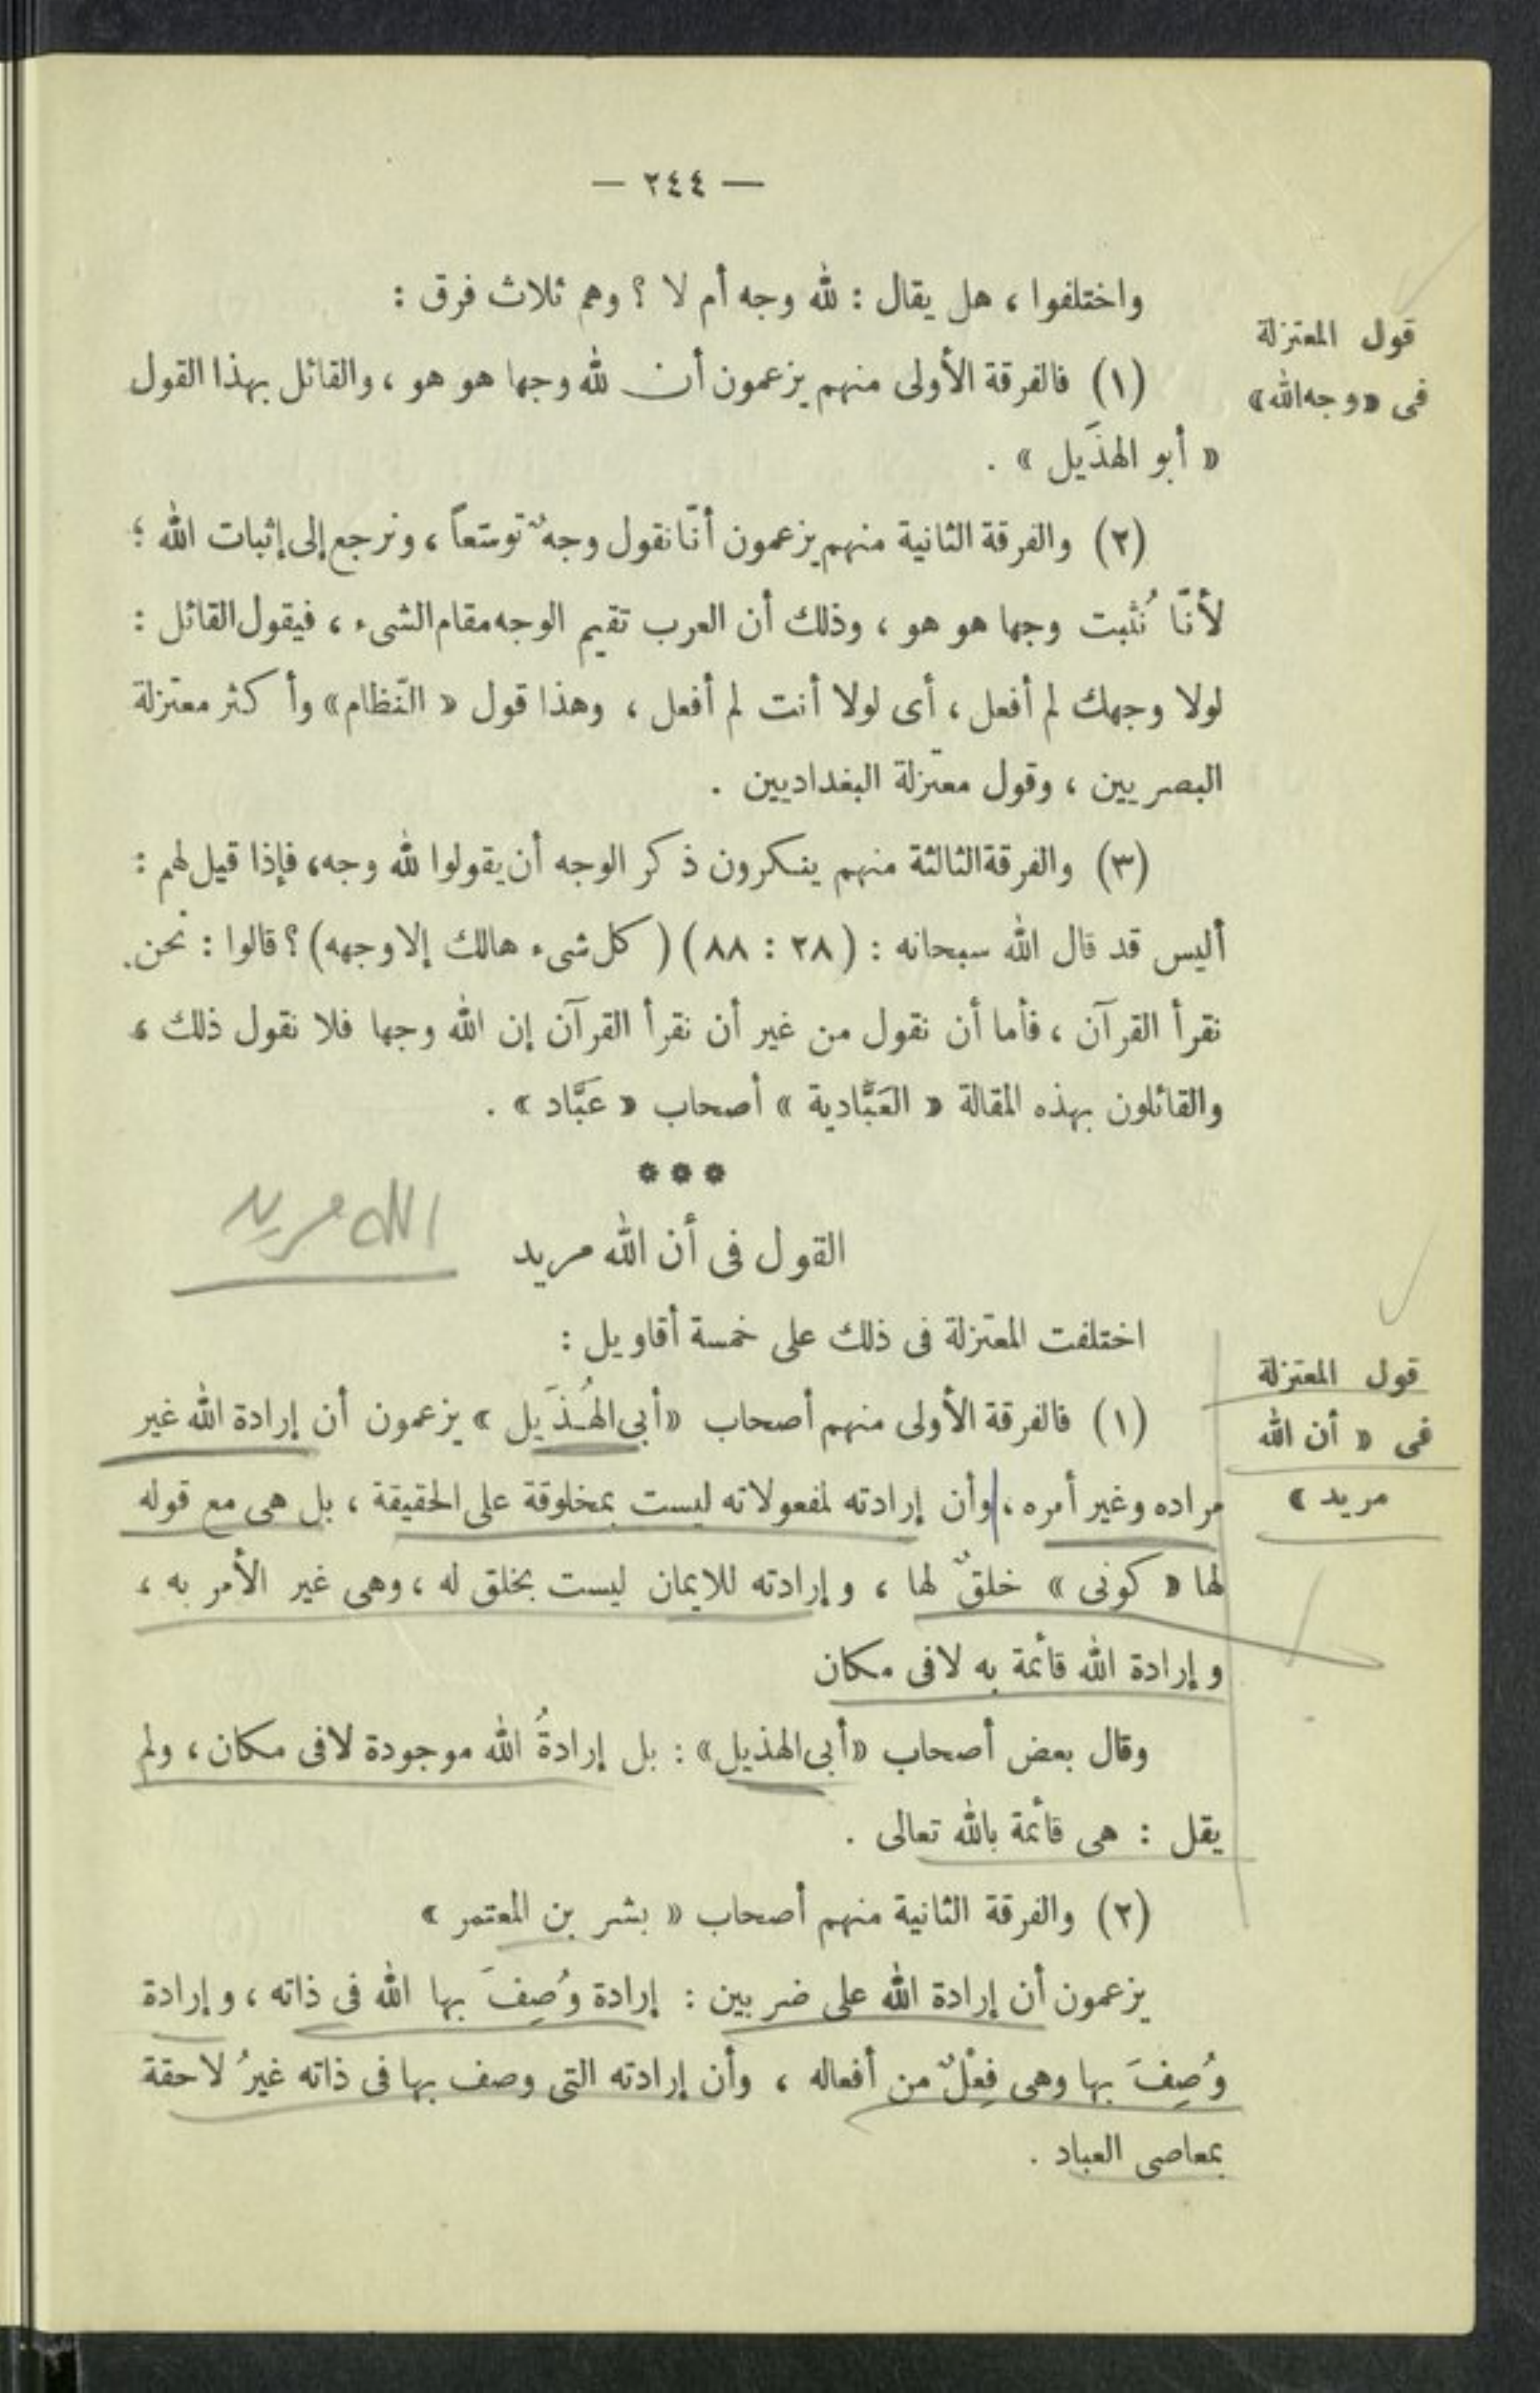 — ٢٤٤ —
واختلفوا ، هل يقال : لله وجه أم لا ؟ وهم ثلاث فرق :
قول المعتزلة
فى «وجه الله»
(١) فالفرقة الأولى منهم يزعمون أن لله وجها هو هو ، والقائل بهذا القول
« أبو الهذَيل » .
(٢) والفرقة الثانية منهم يزعمون أنّا نقول وجهٌ توسّعاً ، ونرجع إلى إثبات الله ؛
لأنّا نُثبت وجها هو هو ، وذلك أن العرب تقيم الوجه مقام الشىء ، فيقول القائل :
لولا وجهك لم أفعل ، أى لولا أنت لم أفعل ، وهذا قول « النّظام » وأكثر معتزلة
البصريين ، وقول معتزلة البغداديين .
(٣) والفرقة الثالثة منهم ينكرون ذكر الوجه أن يقولوا لله وجه، فإذا قيل لهم :
أليس قد قال الله سبحانه : (٢٨ : ٨٨) (كل شىء هالك إلا وجهه) ؟ قالوا : نحن
نقرأ القرآن ، فأما أن نقول من غير أن نقرأ القرآن إن الله وجها فلا نقول ذلك ،
والقائلون بهذه المقالة « العَبَّادية » أصحاب « عَبَّاد » .
***
الله مريد
القول فى أن الله مريد
اختلفت المعتزلة فى ذلك على خمسة أقاويل :
قول المعتزلة
فى « أن الله
مريد »
(١) فالفرقة الأولى منهم أصحاب «أبى الهُذَيل » يزعمون أن إرادة الله غير
مراده وغير أمره ، وأن إرادته لمفعولاته ليست بمخلوقة على الحقيقة ، بل هى مع قوله
لها « كونى » خلقٌ لها ، وإرادته للايمان ليست بخلق له ، وهى غير الأمر به ،
وإرادة الله قائمة به لا فى مكان
وقال بعض أصحاب «أبى الهذيل» : بل إرادةُ الله موجودة لا فى مكان ، ولم
يقل : هى قائمة بالله تعالى .
(٢) والفرقة الثانية منهم أصحاب « بشر بن المعتمر »
يزعمون أن إرادة الله على ضربين : إرادة وُصِفَ بها الله فى ذاته ، وإرادة
وُصِفَ بها وهى فِعْلٌ من أفعاله ، وأن إرادته التى وصف بها فى ذاته غيرُ لاحقة
بمعاصى العباد .